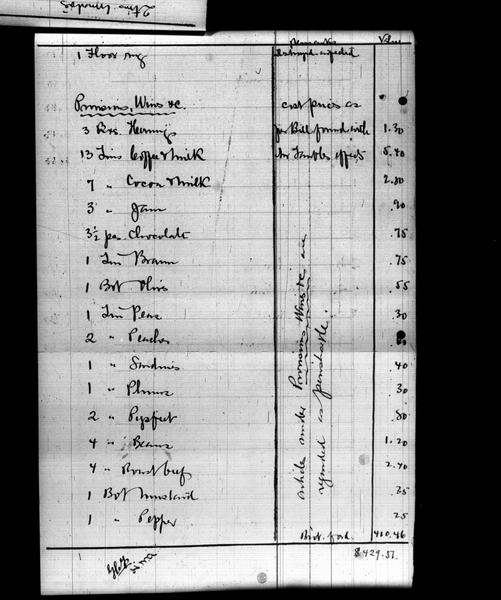 Remarks Value
1 Floor rug
Provisions, Wines &c. cost price as
3 Bxs. Herring per Bill found with 1.30
13 Tins Coffee & Milk effects 5.40
7 " Cocoa & Milk 2.80
3 " Jam .90
3½ pa. Chocolate .75
1 Tin Brawn .75
1 Bot Olives .55
1 Tin Pears .30
2 " Peaches
1 " Sardines .40
1 " Plums .30
2 " Pigsfeet .80
4 " Beans 1.20
4 " Roast beef 2.40
1 Bot Mustard .25
1 " Pepper .25
article under Provisions Wines &c are
regarded as perishable.
Brot. ford. 410.46
$429.51.